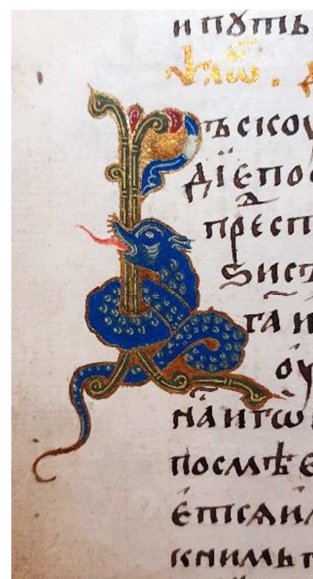 и пꙋть
ѱлѡ҃м.
Въскоу
діепо
прⷣесп
ѕисъ
га и
оу
наигѡ
посмѣе
етсѧи
книмьг